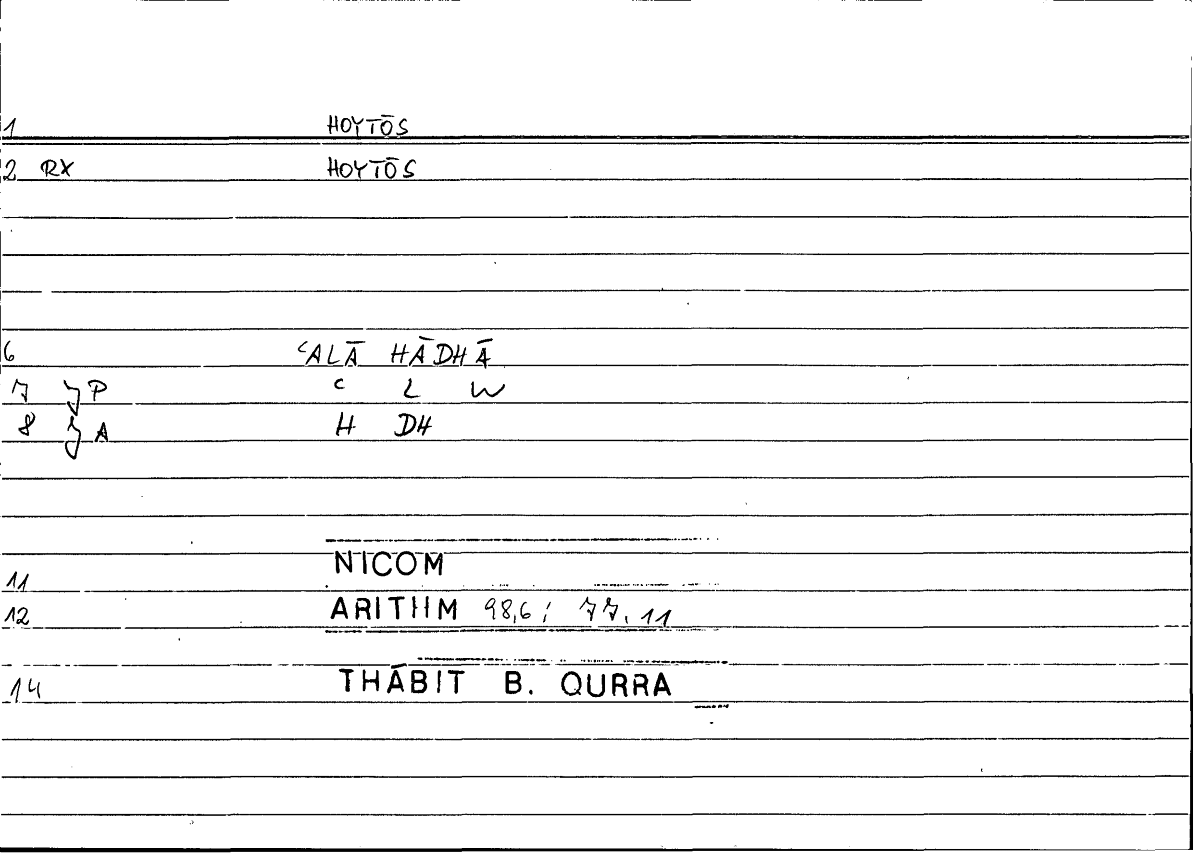 1 HOYTŌS
2 RX HOYTŌS
6 ʿALĀ HĀDHĀ
7 P C L W
8 A H DH
11 NICOM
12 ARITHM 98,6; 77,11
14 THĀBIT B. QURRA